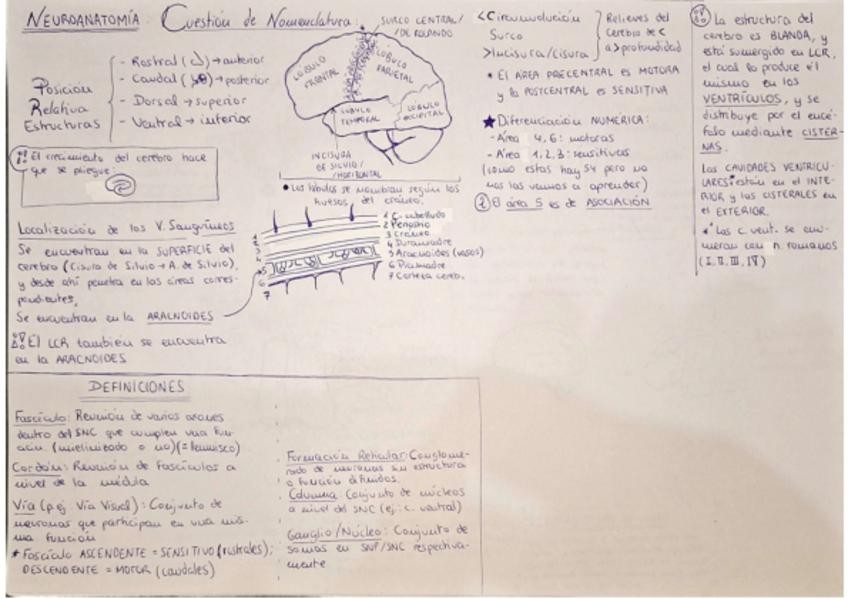 NEUROANATOMÍA: Cuestión de Nomenclatura:
Posición
Relativa
Estructuras
- Rostral → anterior
- Caudal → posterior
- Dorsal → superior
- Ventral → inferior
El crecimiento del cerebro hace
que se pliegue.
Localización de los V. Sanguíneos
Se encuentran en la SUPERFICIE del
cerebro (Cisura de Silvio → A. de Silvio),
y desde ahí penetra en las áreas corres-
pondientes.
Se encuentran en la ARACNOIDES
El LCR también se encuentra
en la ARACNOIDES
SURCO CENTRAL/
/DE ROLANDO
LÓBULO
FRONTAL
LÓBULO
PARIETAL
LÓBULO
TEMPORAL
LÓBULO
OCCIPITAL
INCISURA
DE SILVIO/
/HORIZONTAL
• Los lóbulos se nombran según los
huesos del cráneo.
1 C. cabelludo
2 Periostio
3 Cráneo
4 Duramadre
5 Aracnoides (vasos)
6 Piamadre
7 Corteza cereb.
1
2
3
4
5
6
7
< Circunvolución
Surco
> Incisura/Cisura
Relieves del
cerebro de <
a > profundidad
• EL ÁREA PRECENTRAL ES MOTORA
y la POSTCENTRAL ES SENSITIVA
★ Diferenciación NUMÉRICA:
- Área 4, 6: motoras
- Área 1, 2, 3: sensitivas
(como estas hay 54 pero no
nos las vamos a aprender)
El área 5 es de ASOCIACIÓN
La estructura del
cerebro es BLANDA, y
está sumergido en LCR,
el cual lo produce él
mismo en los
VENTRÍCULOS, y se
distribuye por el encé-
falo mediante CISTER-
NAS.
Las CAVIDADES VENTRICU-
LARES están en el INTE-
RIOR y las CISTERALES en
el EXTERIOR.
* Las c. vent. se enu-
meran con n. romanos
(I, II, III, IV)
DEFINICIONES
Fascículo: Reunión de varios axones
dentro del SNC que cumplen una fun-
ción. (mielinizado o no) (= lemnisco)
Cordón: Reunión de Fascículos a
nivel de la médula
Vía (p.ej. Vía Visual): Conjunto de
neuronas que participan en una mis-
ma función
* Fascículo ASCENDENTE = SENSITIVO (rostrales);
DESCENDENTE = MOTOR (caudales)
Formación Reticular: Conglome-
rado de neuronas sin estructura
o función difinidos.
Columna: Conjunto de núcleos
a nivel del SNC (ej: c. ventral)
Ganglio/Núcleo: Conjunto de
somas en SNP/SNC respectiva-
mente